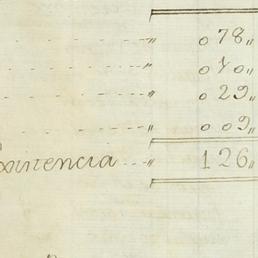 " 078"
" 010"
" 029"
" 009"
xistencia " 126"